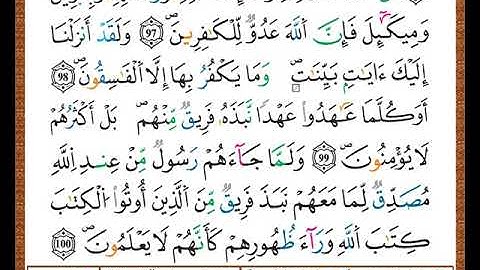 وَمِيكَىٰلَ فَإِنَّ ٱللَّهَ عَدُوٌّ لِّلْكَٰفِرِينَ ﴿97﴾ وَلَقَدْ أَنزَلْنَآ
إِلَيْكَ ءَايَٰتٍۭ بَيِّنَٰتٍ وَمَا يَكْفُرُ بِهَآ إِلَّا ٱلْفَٰسِقُونَ ﴿98﴾
أَوَكُلَّمَا عَٰهَدُوا۟ عَهْدًا نَّبَذَهُۥ فَرِيقٌ مِّنْهُم بَلْ أَكْثَرُهُمْ
لَا يُؤْمِنُونَ ﴿99﴾ وَلَمَّا جَآءَهُمْ رَسُولٌ مِّنْ عِندِ ٱللَّهِ
مُصَدِّقٌ لِّمَا مَعَهُمْ نَبَذَ فَرِيقٌ مِّنَ ٱلَّذِينَ أُوتُوا۟ ٱلْكِتَٰبَ
كِتَٰبَ ٱللَّهِ وَرَآءَ ظُهُورِهِمْ كَأَنَّهُمْ لَا يَعْلَمُونَ ﴿100﴾